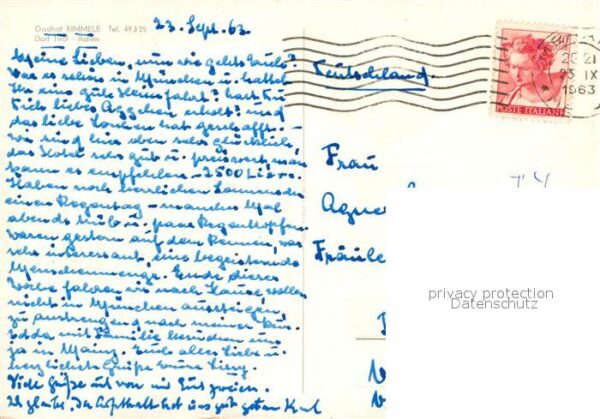 Gasthof RIMMELE Tel. 49325
Dorf Tirol - Italien
23. Sept. 63.
Meine Lieben, nun wie gehts Euch?
War es schön in München u. hattet
Ihr eine gute Heimfahrt? hast Du
Dich liebes Aggchen erholt? und
das liebe
wir sind hier oben sehr glücklich,
das Hotel sehr gut u. preiswert, man
kann es empfehlen - 2500 Lire.
Haben noch herrlichen Sonnenschein
einen Regentag - manches Mal
abends trüb u. paar Regentropfen
waren gestern auf dem Rennen, war
sehr interessant, eine begeisternde
Menschenmenge. Ende dieser
Woche fahren wir nach Hause, wollen
nicht in München aussteigen,
zu anstrengend nach meiner
mit Familie
ja in Mainz. Euch alles Liebe u.
herzlichste Grüße Eure
Viele Grüße auch von mir Euch zweien.
Ich glaube, der Aufenthalt hat uns gut getan Karl
Deutschland.
20-21
23 IX
1963
POSTE ITALIANE
Frau
Agne
Fräule
privacy protection
Datenschutz